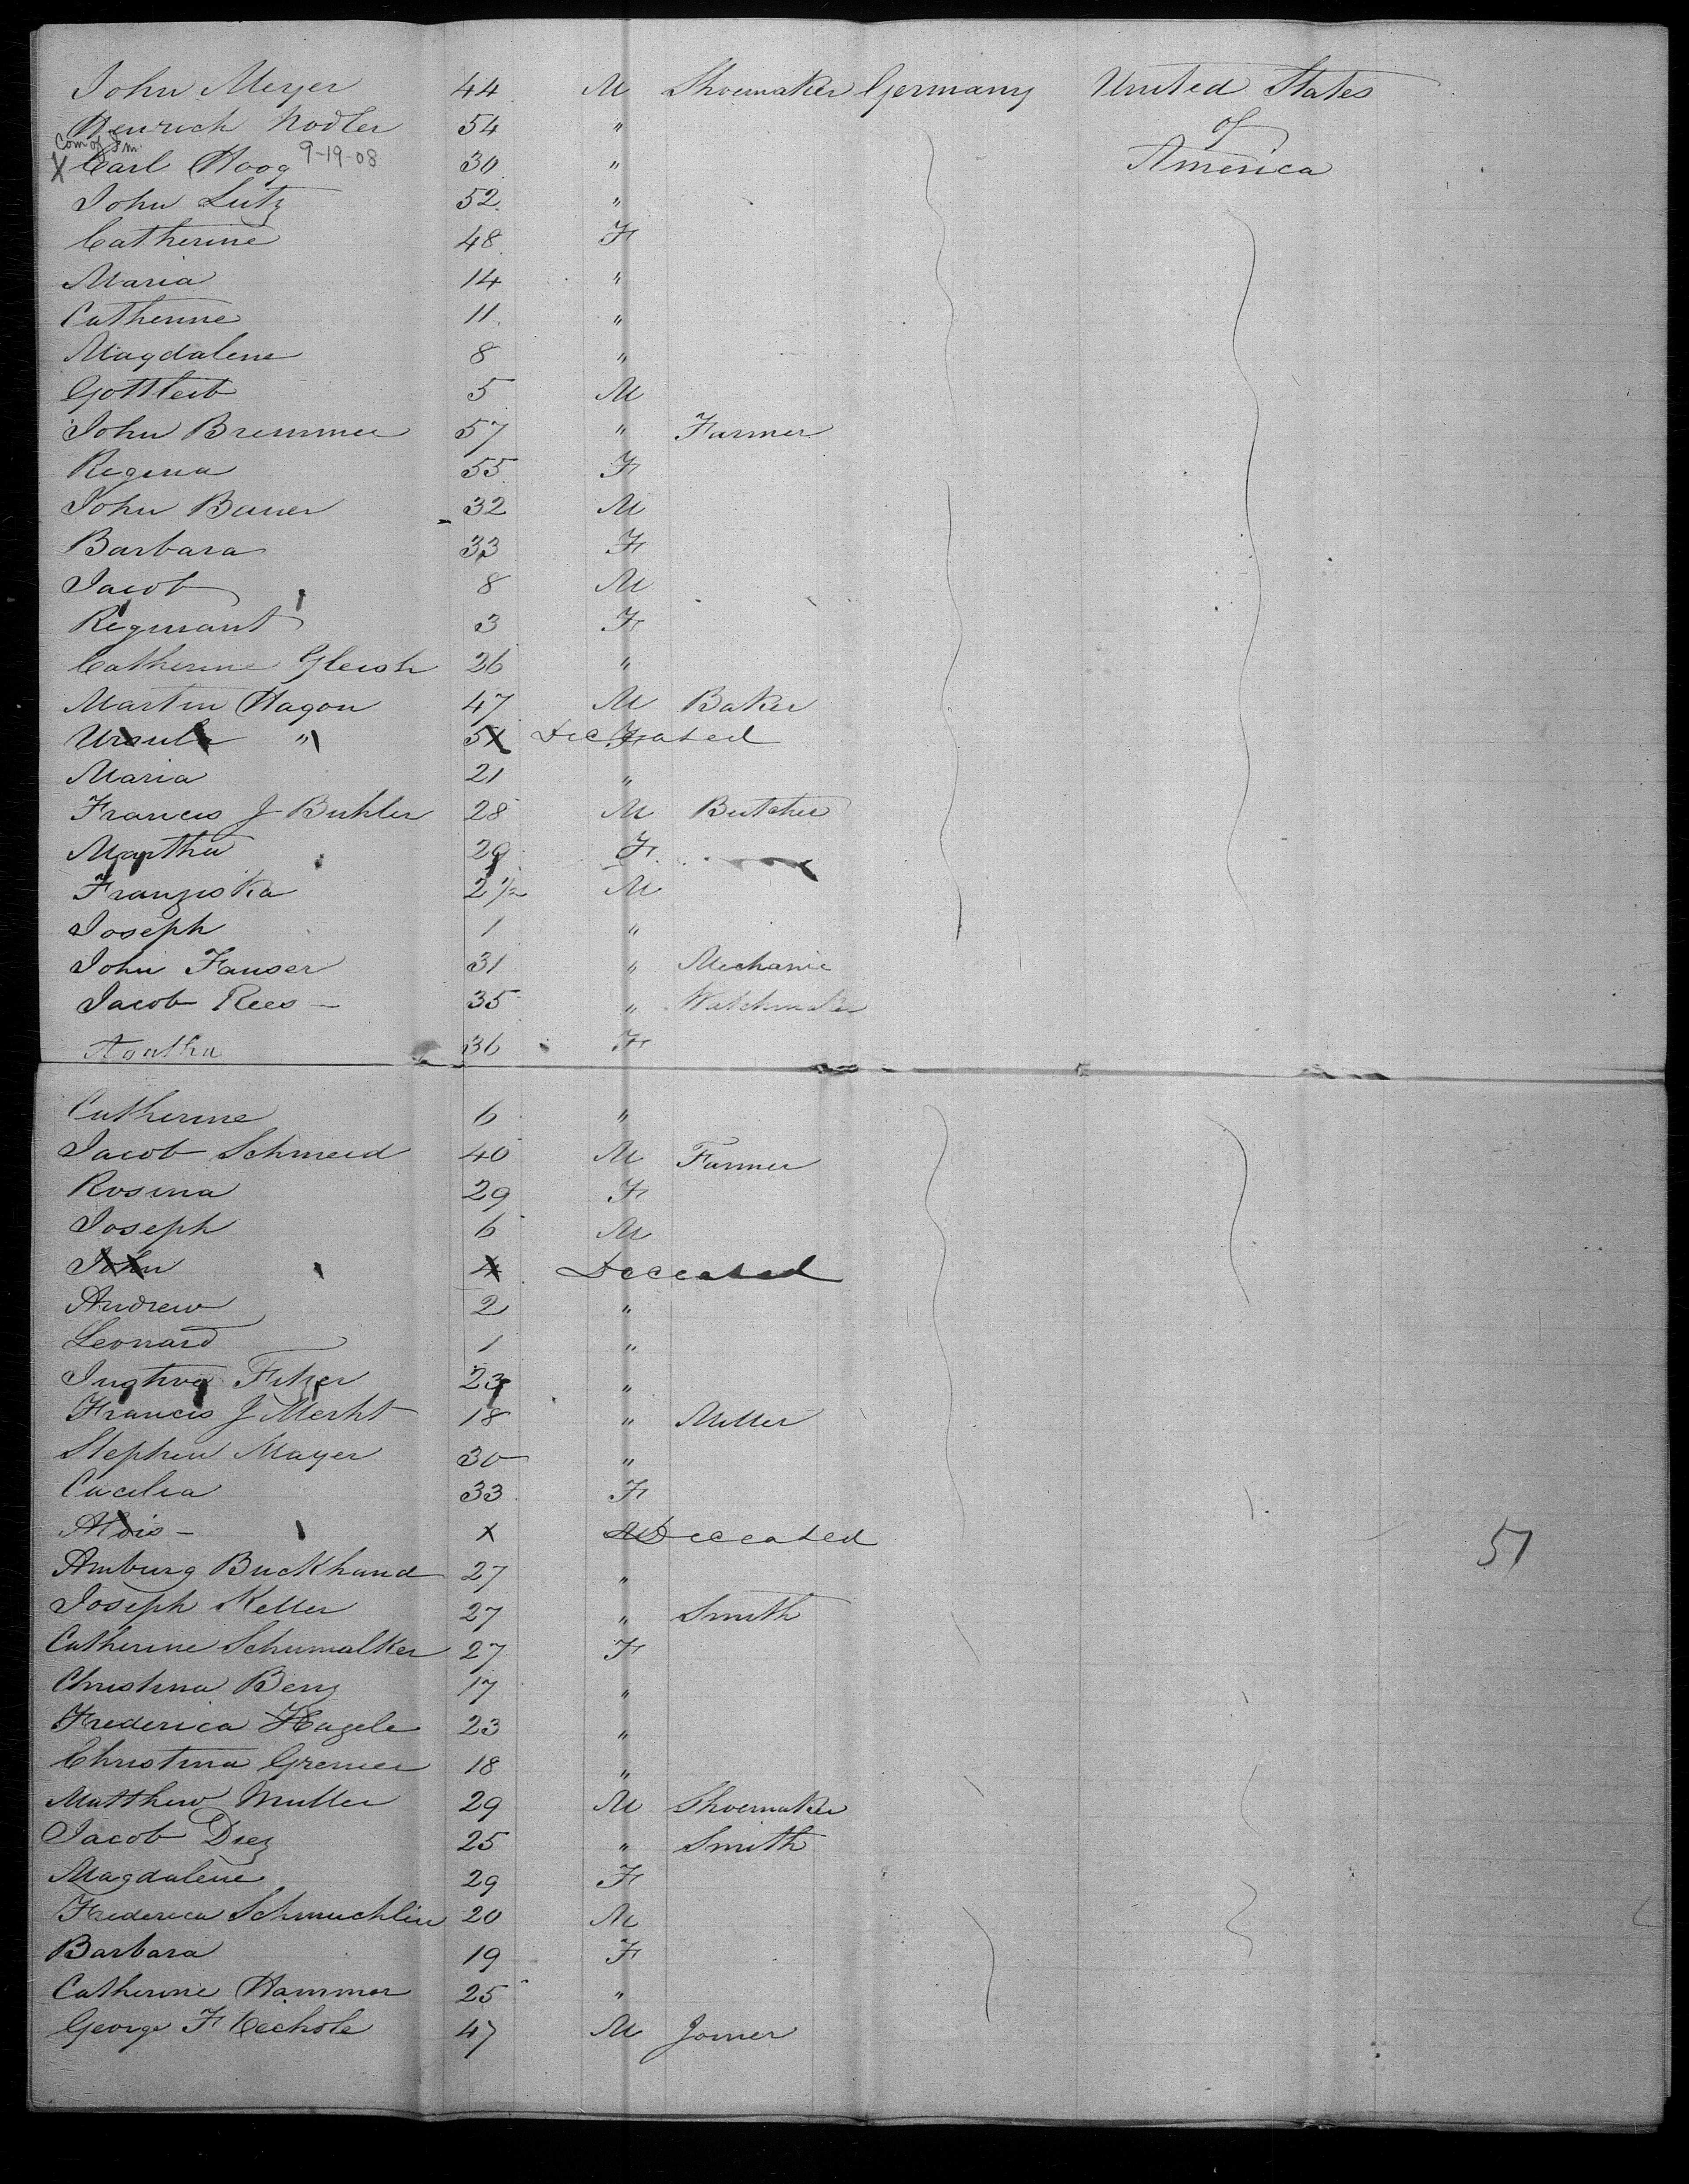 John Meyer 44 M Shoemaker Germany United States
Heinrich Nodler 54 " of
Com of Im. 9-19-08
X Carl Hoog 30 " America
John Lutz 52 "
Catherine 48 F
Maria 14 "
Catherine 11 "
Magdalene 8 "
Gottleib 5 M
John Bremmer 57 " Farmer
Regina 55 F
John Bauer 32 M
Barbara 33 F
Jacob 8 M
3 F
Catherine Gleish 26 "
Martin Hagon 47 M Baker
Ursula " 51 F Deceased
Maria 21 "
Francis J Buhler 28 M Butcher
Martha 29 F
Franziska 2 1/2 M
Joseph 1 "
John Fauser 31 " Mechanic
Jacob Rees - 35 " Watchmaker
Agatha 36 F
Catherine 6 "
Jacob Schmeid 40 M Farmer
Rosina 29 F
Joseph 6 M
John 4 Deceased
Andrew 2 "
Leonard 1 "
23 "
Francis J Merkt 18 " Miller
Stephen Mayer 30 "
Cacilia 33 F
Alois - M Deceased
57
Amburg Buckhand 27 "
Joseph Keller 27 " Smith
Catherine Schumalker 27 F
Christina Benz 17 "
Frederica Hagele 23 "
Christina Grenier 18 "
Matthew Muller 29 M Shoemaker
Jacob Diez 25 " Smith
Magdalene 29 F
Frederica Schmuchlin 20 M
Barbara 19 F
Catherine Hammer 25 "
George F 47 M Joiner